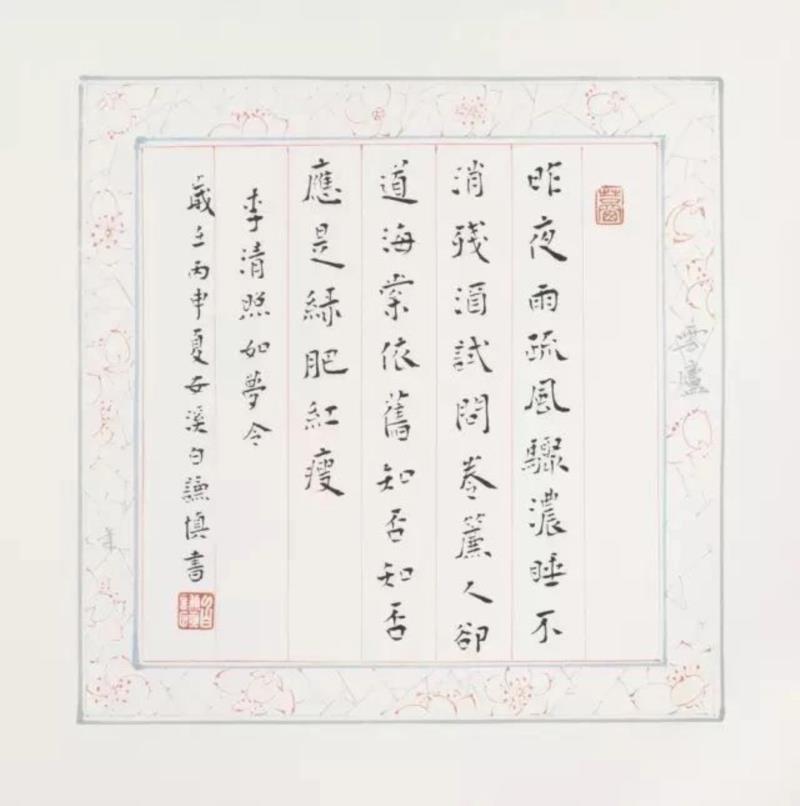 昨夜雨疏風驟濃睡不
消殘酒試問卷簾人卻
道海棠依舊知否知否
應是綠肥紅瘦
李清照如夢令
歲在丙申夏安溪白謙慎書
雲廬